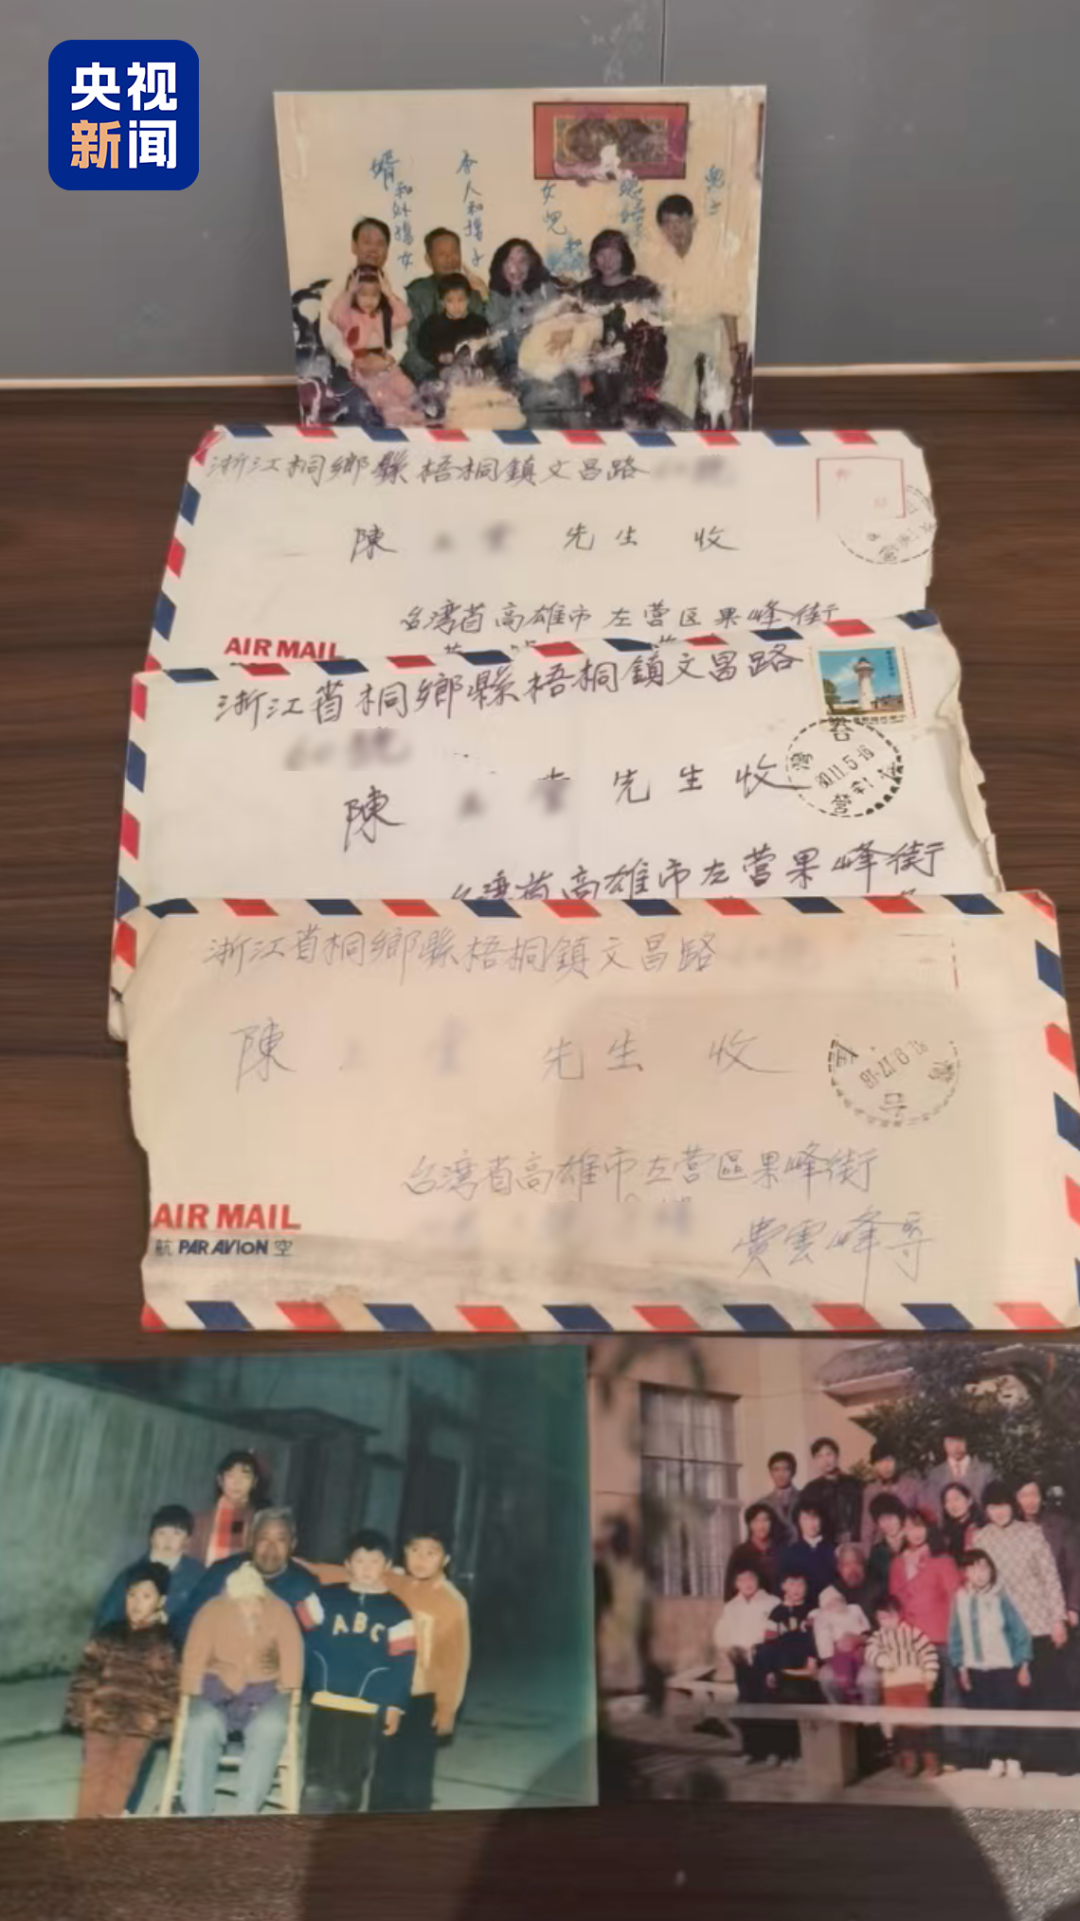 央视
新闻
婿和外孫女
本人和孫子
女兒
兒子
浙江桐鄉縣梧桐鎮文昌路
陳 先生 收
台湾省高雄市左营区果峰街
AIR MAIL
浙江省桐鄉縣梧桐鎮文昌路
陳 先生 收
台湾省高雄市左营果峰街
浙江省桐鄉縣梧桐鎮文昌路
陳 先生 收
台湾省高雄市左营區果峰街
費雲峰寄
AIR MAIL
航 PAR AVION 空
ABC